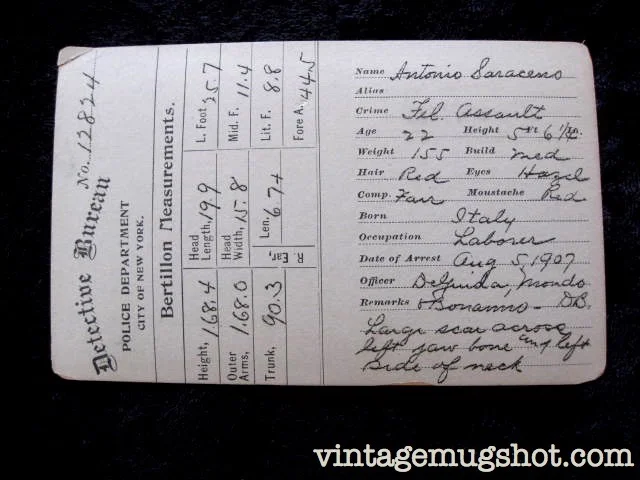 Detective Bureau No. 12824
POLICE DEPARTMENT
CITY OF NEW YORK.
Bertillon Measurements.
Height, 168.4 Head Length, 19.9 L. Foot 25.7
Outer Arms, 1.68.0 Head Width, 15.8 Mid. F. 11.4
Trunk, 90.3 R. Ear, Len. 6.7+ Lit. F. 8.8
Fore A. 44.5
Name Antonio Saraceno
Alias
Crime Fel. Assault
Age 22 Height 5 Ft 6 1/4 In.
Weight 155 Build Med
Hair Red Eyes Hazel
Comp. Fair Moustache Red
Born Italy
Occupation Laborer
Date of Arrest Aug 5, 1907
Officer Mondo
Remarks + Bonanno - DB.
Large scar across
left jaw bone and left
side of neck
vintagemugshot.com